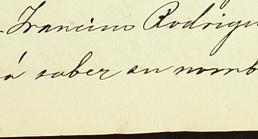 Francino Rodrigu
á saber su nomb